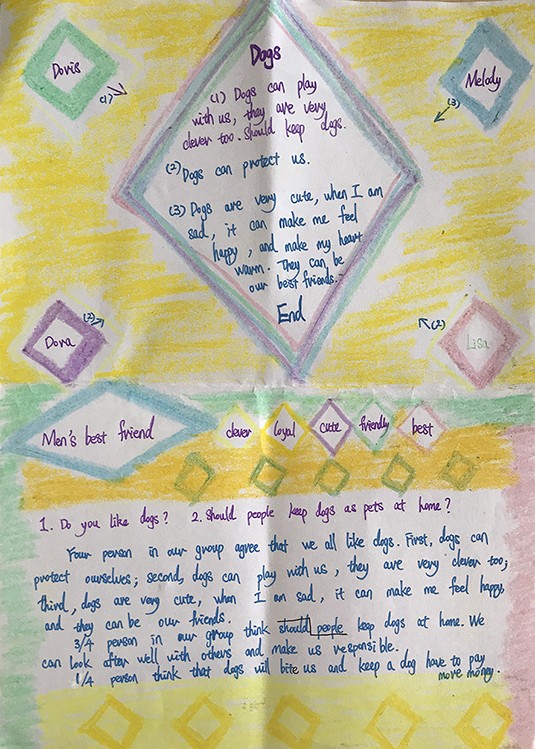 Dogs
Doris
(1)
Melody
(3)
(1) Dogs can play
with us, they are very
clever too. Should keep dogs.
(2) Dogs can protect us.
(3) Dogs are very cute, when I am
sad, it can make me feel
happy, and make my heart
warm. They can be
our best friends.
End
Dora
(2)
Lisa
(2)
Men's best friend
clever
loyal
cute
friendly
best
1. Do you like dogs? 2. Should people keep dogs as pets at home?
Four person in our group agree that we all like dogs. First, dogs can
protect ourselves; second, dogs can play with us, they are very clever too;
third, dogs are very cute, when I am sad, it can make me feel happy,
and they can be our friends.
3/4 person in our group think should people keep dogs at home. We
can look after well with others and make us responsible.
1/4 person think that dogs will bite us and keep a dog have to pay
more money.